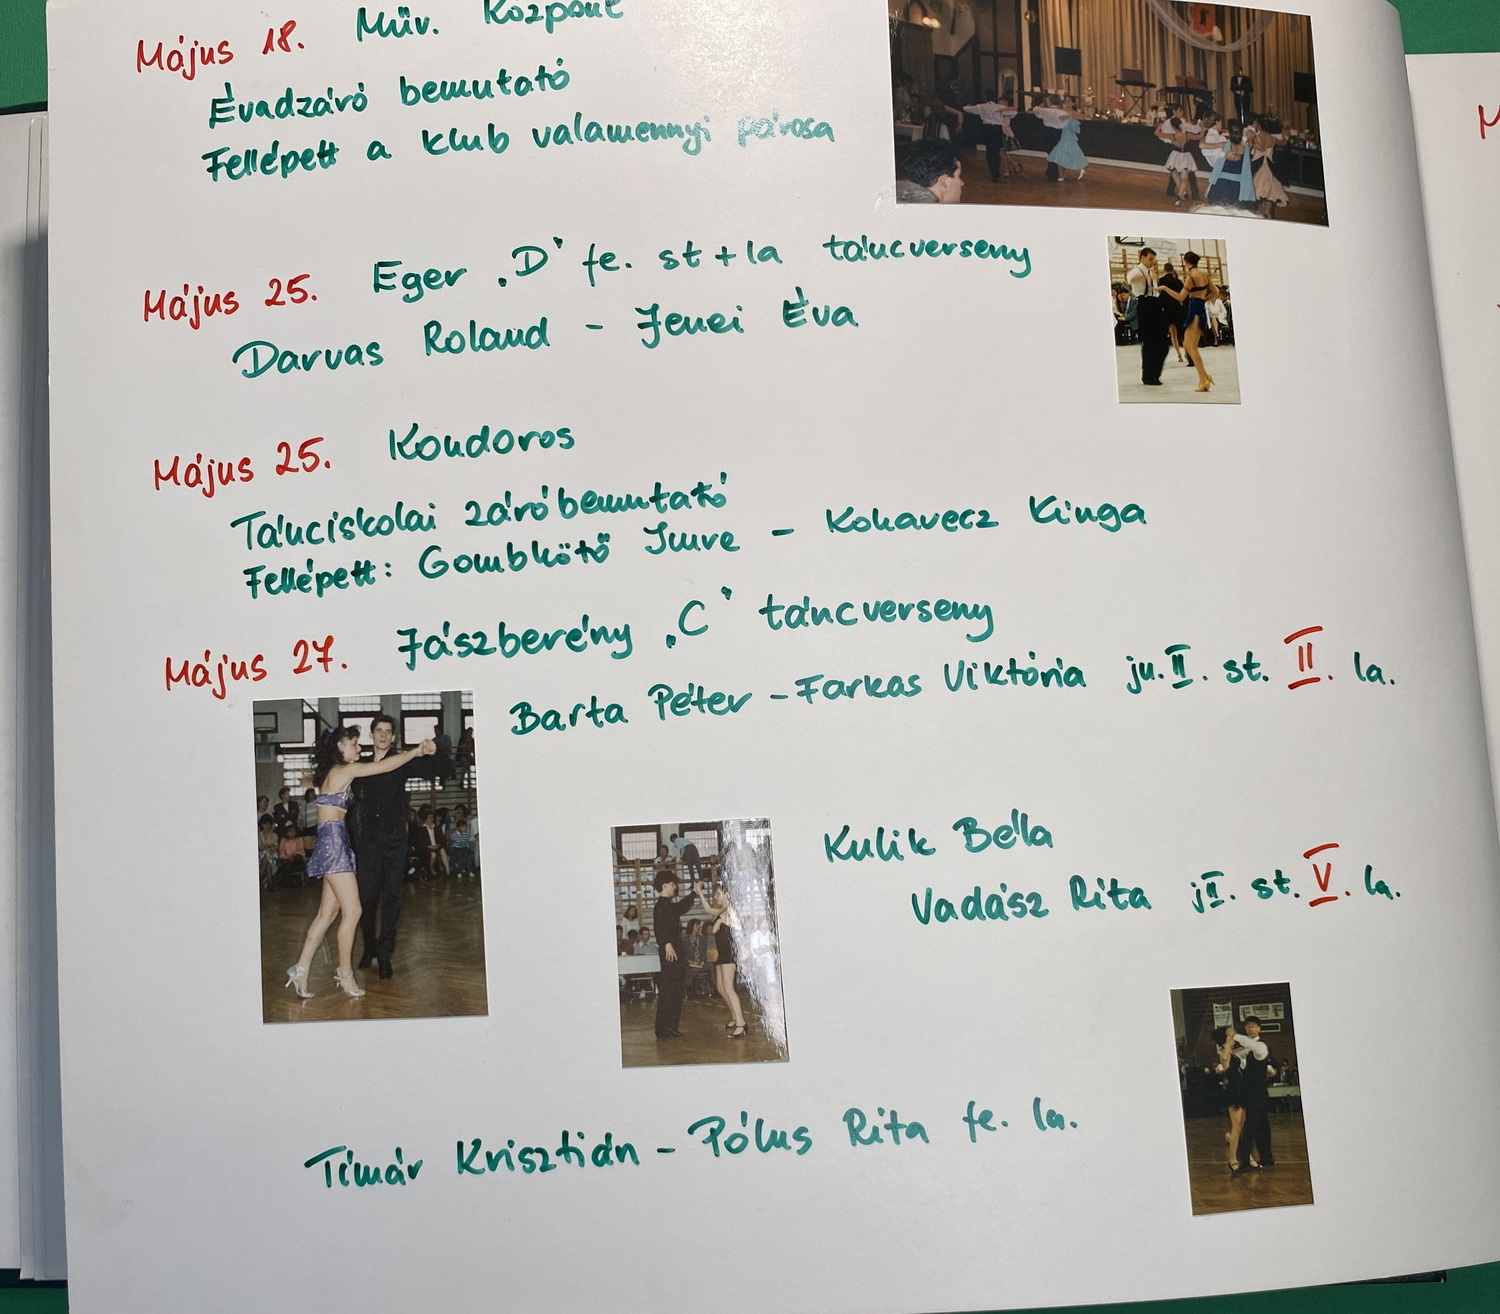 Május 18. Műv. Központ
Évadzáró bemutató
Fellépett a klub valamennyi párosa
Május 25. Eger „D" fe. st + la táncverseny
Darvas Roland - Jenei Éva
Május 25. Kondoros
Tánciskolai záróbemutató
Fellépett: Gombkötő Imre - Kohavecz Kinga
Május 27. Jászberény „C" táncverseny
Barta Péter - Farkas Viktória ju. II. st. II. la.
Kulik Béla
Vadász Rita jII. st. V. la.
Tímár Krisztián - Pólus Rita fe. la.